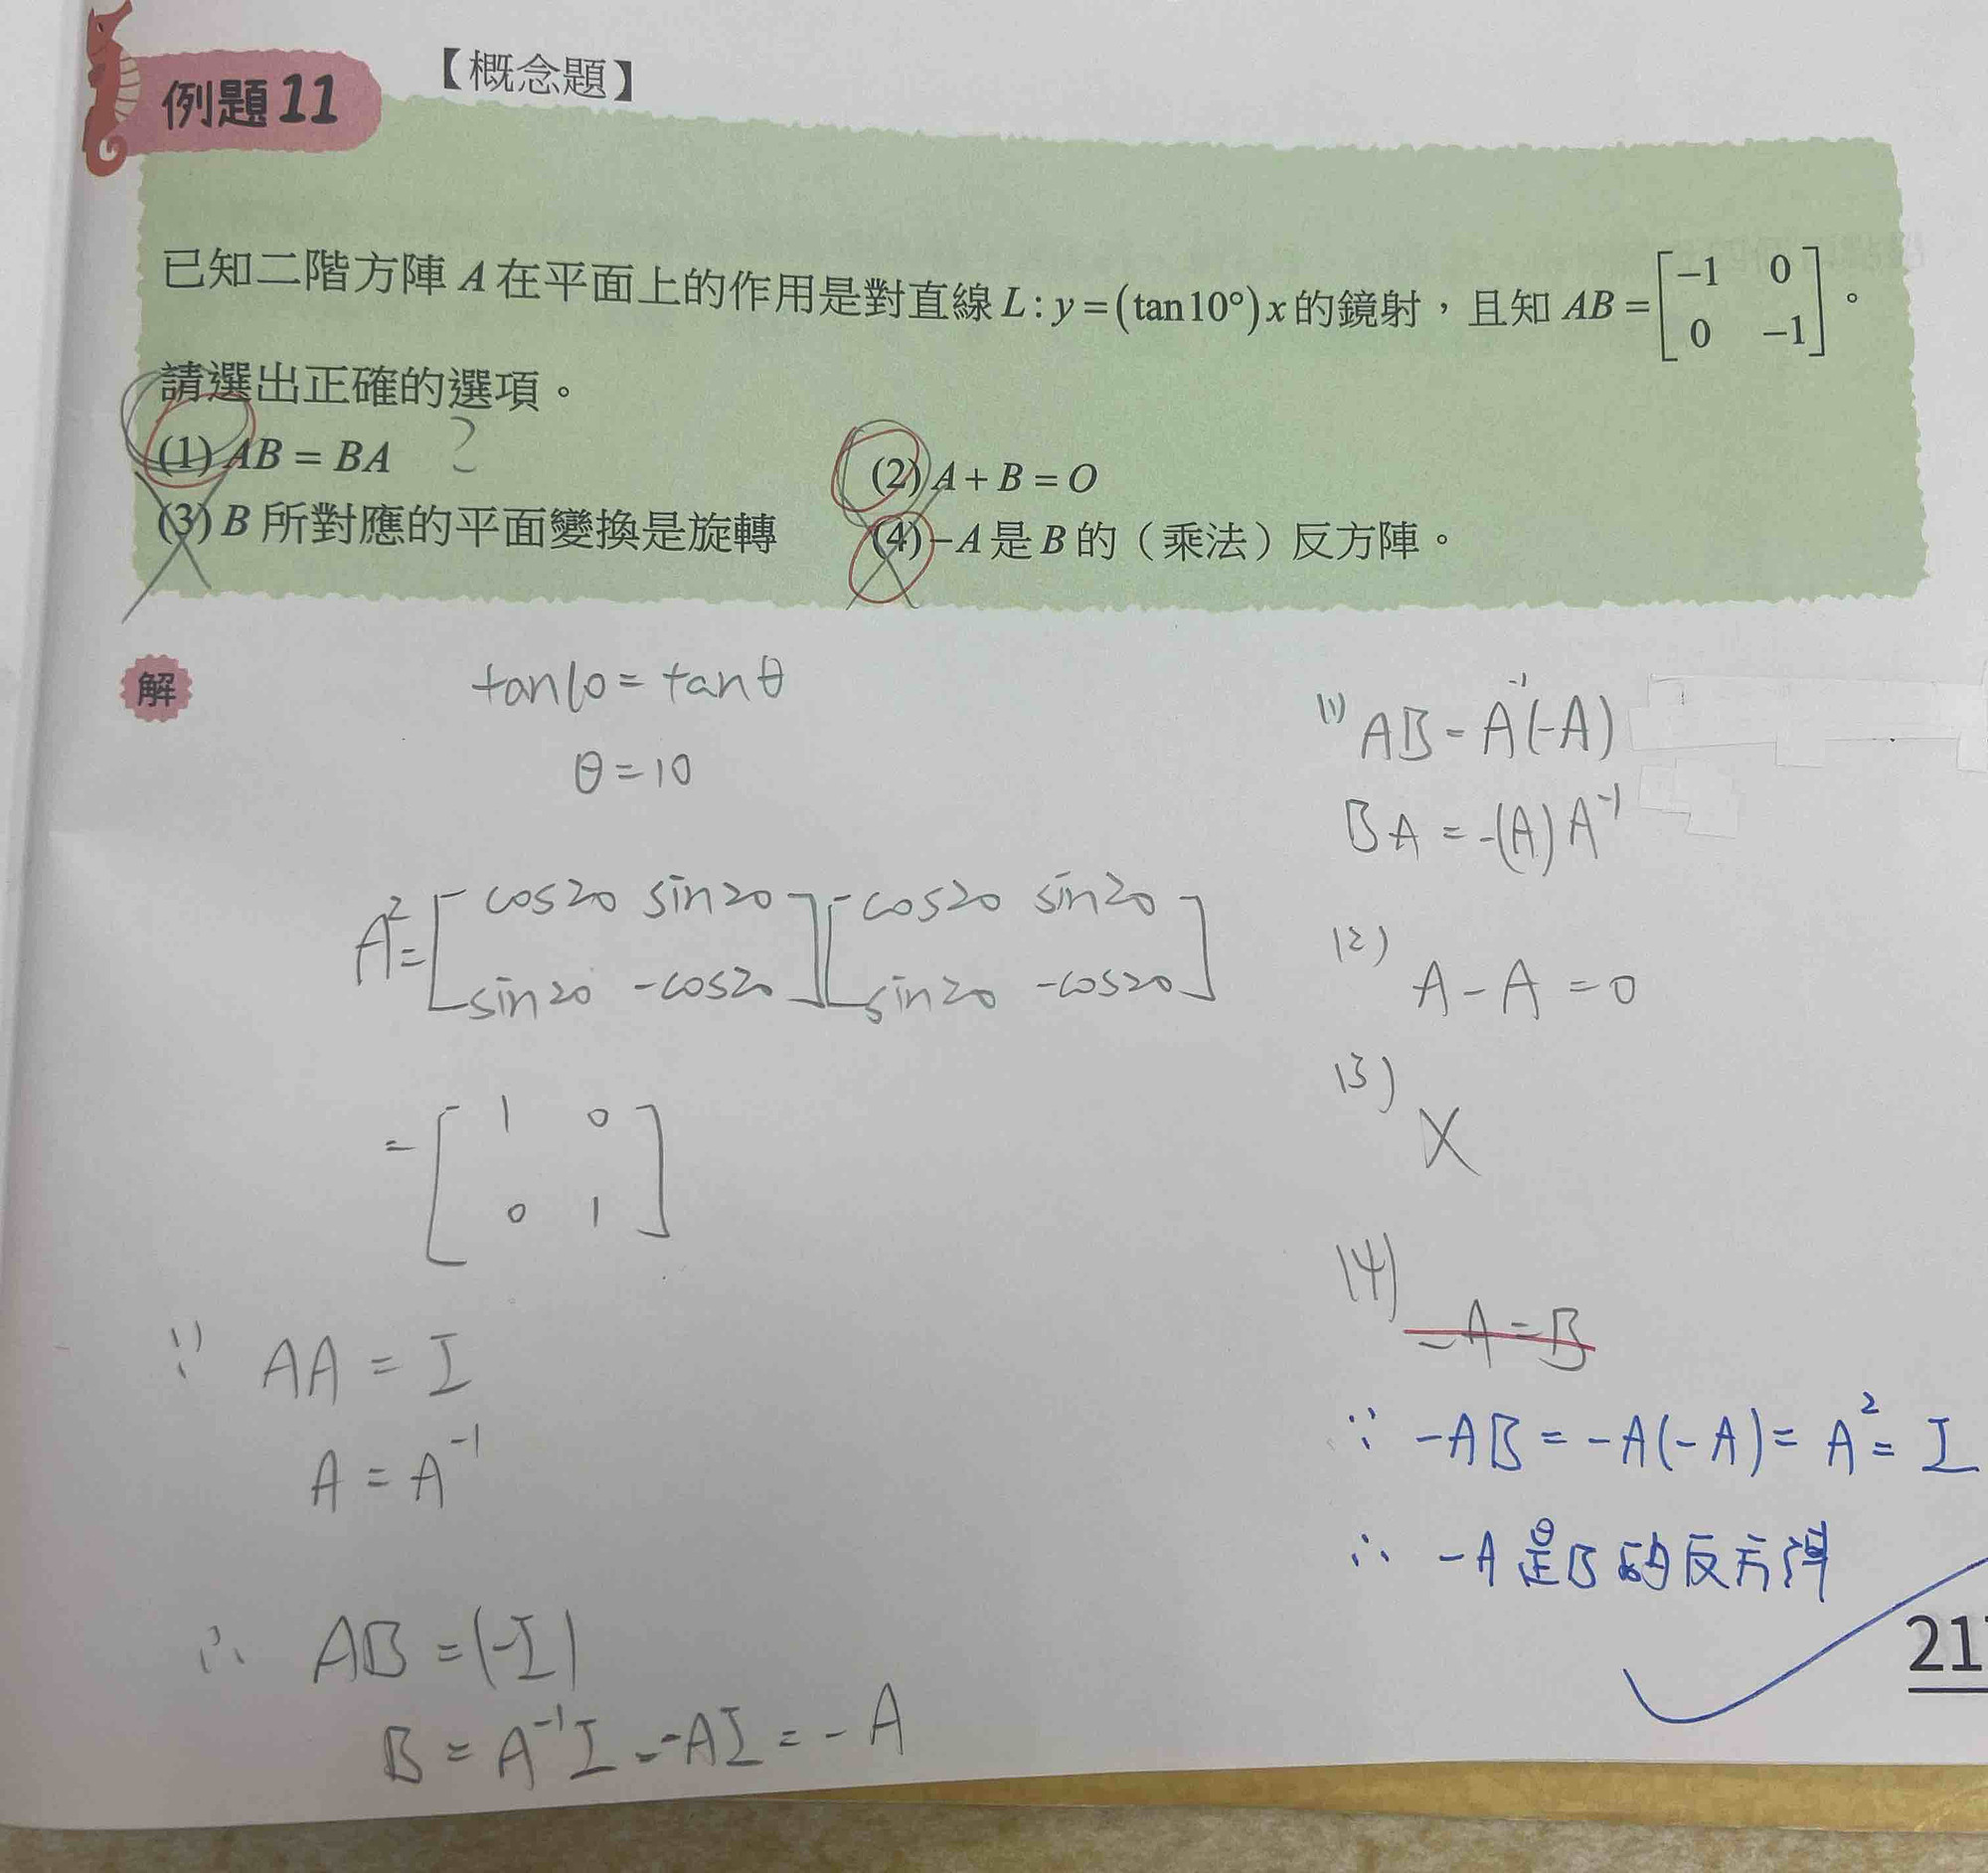 例題11
【概念題】
已知二階方陣 A 在平面上的作用是對直線 L : y = (tan10°) x 的鏡射，且知 AB = [-1 0 0 -1] 。
請選出正確的選項。
(1) AB = BA ?
(2) A + B = O
(3) B 所對應的平面變換是旋轉
(4) -A 是 B 的（乘法）反方陣。
解
tan10 = tanθ
θ = 10
A² = [cos20 sin20 sin20 -cos20] [cos20 sin20 sin20 -cos20]
= [1 0 0 1]
∵ AA = I
A = A⁻¹
∴ AB = (-I)
B = A⁻¹I = -AI = -A
(1) AB = A⁻¹(-A)
BA = -(A)A⁻¹
(2)
A - A = 0
(3)
X
(4)
-A = B
∵ -AB = -A(-A) = A² = I
∴ -A 是B 的反方陣